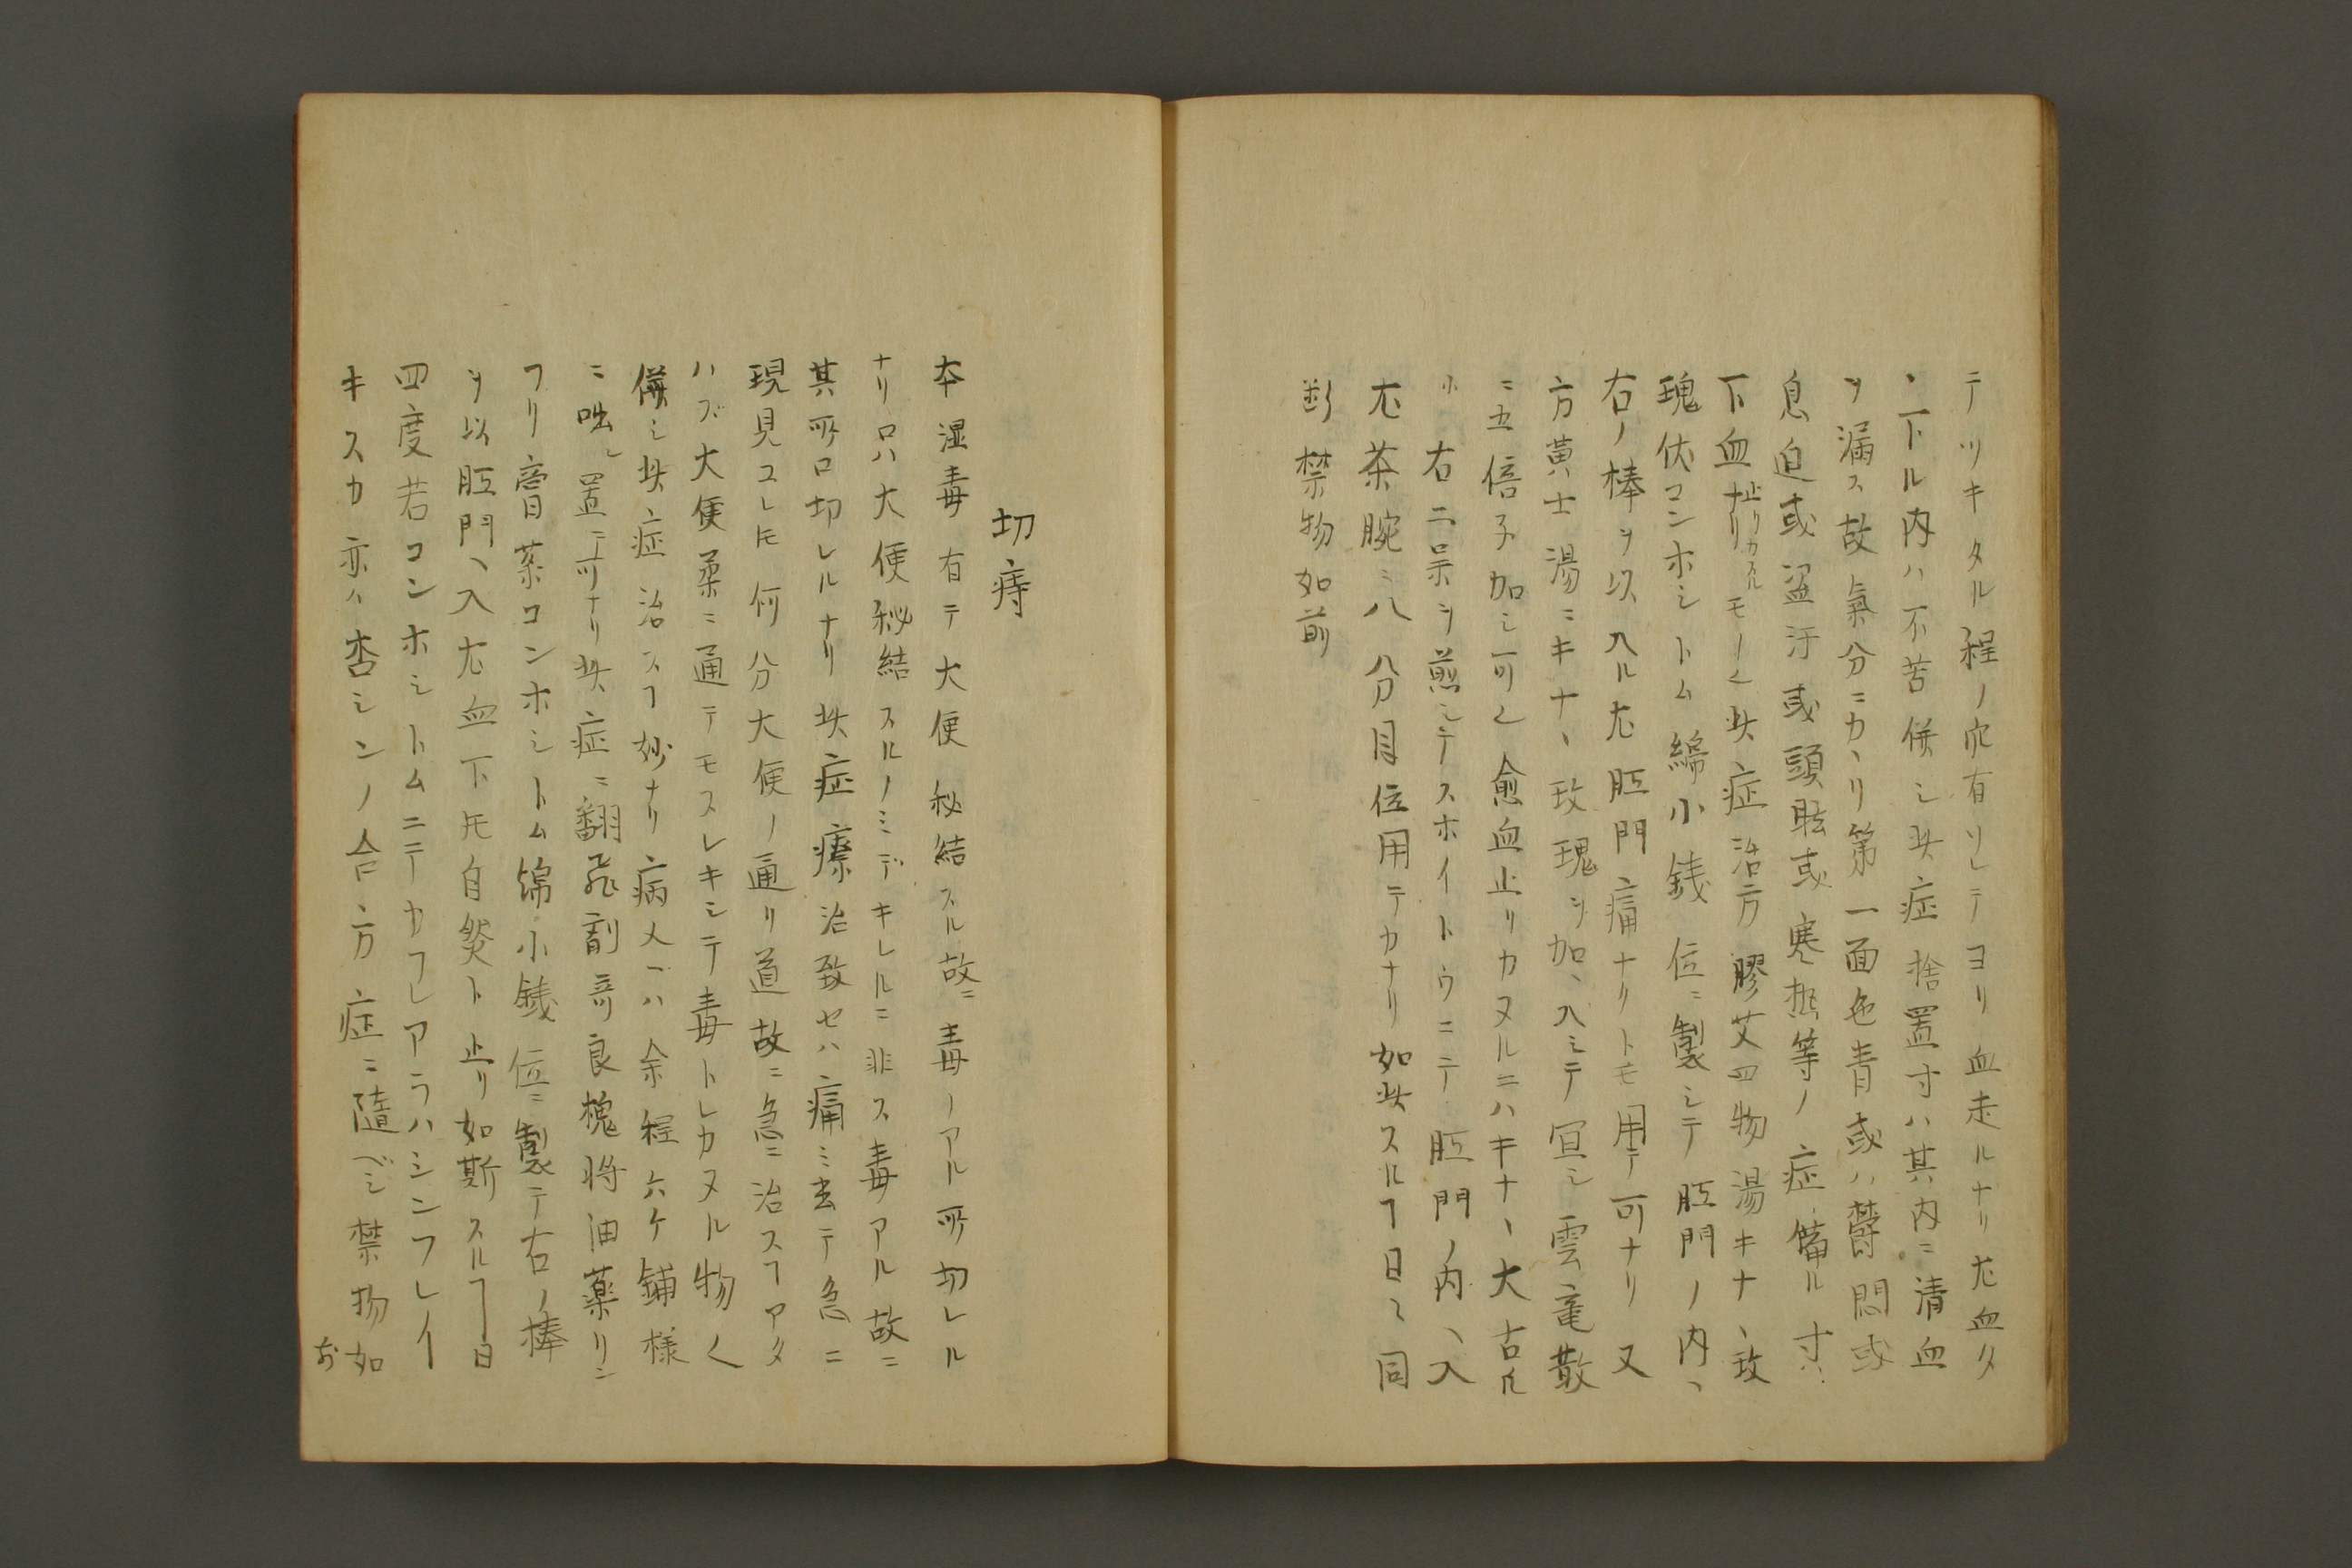 テツキタル程ノ穴有リレテヨリ血走ルナリ尤血タ
ヽ下ル内ハ不苦併シ此症捨置寸ハ其内ニ清血
ヲ漏ス故氣分ニカヽリ第一面色青或ハ欝悶或
息迫或盗汗或頭眩或寒熱等ノ症備ル寸ハ
下血止リカヌルモノ也此症治方膠艾四物湯キナヽ玫
瑰伏コンホシトム綿小銭位ニ製シテ肛門ノ内ヘ
右ノ棒ヲ以入ル尤肛門痛ナリトモ用テ可ナリ又
方黄土湯ニキナヽ玫瑰ヲ加ヘ入ミテ冝シ雲竜散
ニ五倍子加ヘシ可也愈血止リカヌルニハキナヽ大古ル
ホ右二呆ヲ煎シテスホイトウニテ肛門ノ内ヘ入
尤茶腕ニ八分目位用テカナリ如此スルヿ日々同
断禁物如前
切痔
本湿毒有テ大便秘結スル故ニ毒ノアル所切レル
ナリ只ハ大便秘結スルノミデキレルニ非ス毒アル故ニ
其所ロ切レルナリ此症療治致セハ痛ミ去テ急ニ
現見ユレ𪜈何分大便ノ通リ道故ニ急ニ治スヿアタ
ハズ大便柔ニ通テモスレキシテ毒トレカヌル物也
併シ此症治スヿ妙ナリ病人ヘハ余程六ケ鋪様
ニ咄シ置テ可ナリ此症ニ翻飛割奇良槐将油薬リニ
フリ膏薬コンホシトム綿小銭位ニ製テ右ノ棒
ヲ以肛門ヘ入尤血下𪜈自然ト止リ如斯スルヿ一日
四度若コンホシトムニテカフレアラハシンフレイ
キスカ亦ハ杏シンノ合方症ニ隨ベシ禁物如
前